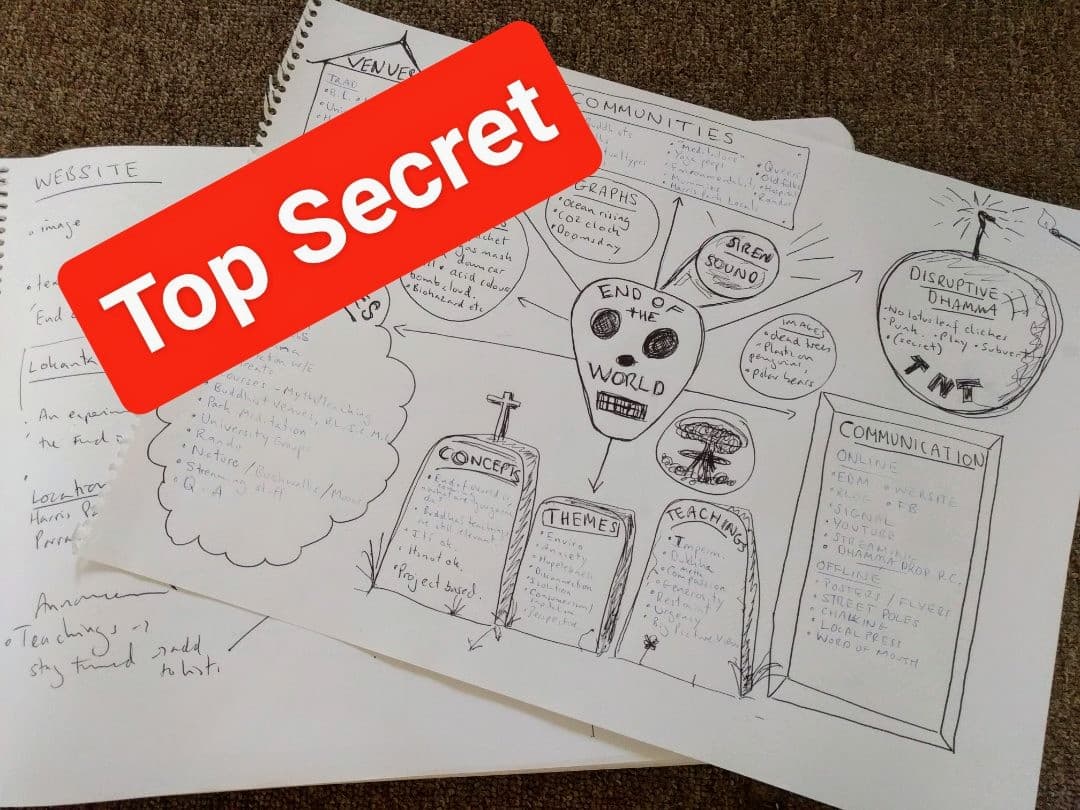 Top Secret
WEBSITE
• image
'End
Lokanta
An experim
the End
Location
Harris Pa
Parra
Announcem
• Teachings →
stay tuned → add
to list.
VENUES
TRAD
• B.L.
• Uni
COMMUNITIES
• Yoga peeps
• Environmentalists
• Harris Park Locals
• Queers
• Old folks
• Hospital
• Randos
GRAPHS
• Ocean rising
• CO2 clock
• Doomsday
gas mask
acid colours
bomb cloud.
• Biohazard etc
SIREN
SOUND
END OF
THE
WORLD
IMAGES
• dead trees
• Plastic on
penguins,
• polar bears
DISRUPTIVE
DHAMMA
• No lotus leaf cliches
• Punk • Play • Subvert
• (secret)
TNT
Courses - Myth/Teaching
• Buddhist Venues, B.L. S.C. M.L.
• Park Meditation
• University Groups
• Rando
• Nature / Bushwalks / Moon
• Streaming st.A
• Q + A
CONCEPTS
• End of world is
• Buddhas teachings
are still relevant
• It's ok.
• It's not ok.
• Project based.
THEMES
• Enviro
• Anxiety
• Hopelessness
• Disconnection
• Isolation
• Consumerism/
Capitalism
• Perspective
TEACHINGS
• Imperm.
• Dukkha
• metta
• Compassion
• Generosity
• Restraint
• Urgency
• Big Picture View
COMMUNICATION
ONLINE
• EDM • WEBSITE
• BLOG • FB
• SIGNAL
• YOUTUBE
• STREAMING
• DHAMMA DROP R.C.
OFFLINE
• POSTERS / FLYERS
• STREET POLES
• CHALKING
• LOCAL PRESS
• WORD OF MOUTH